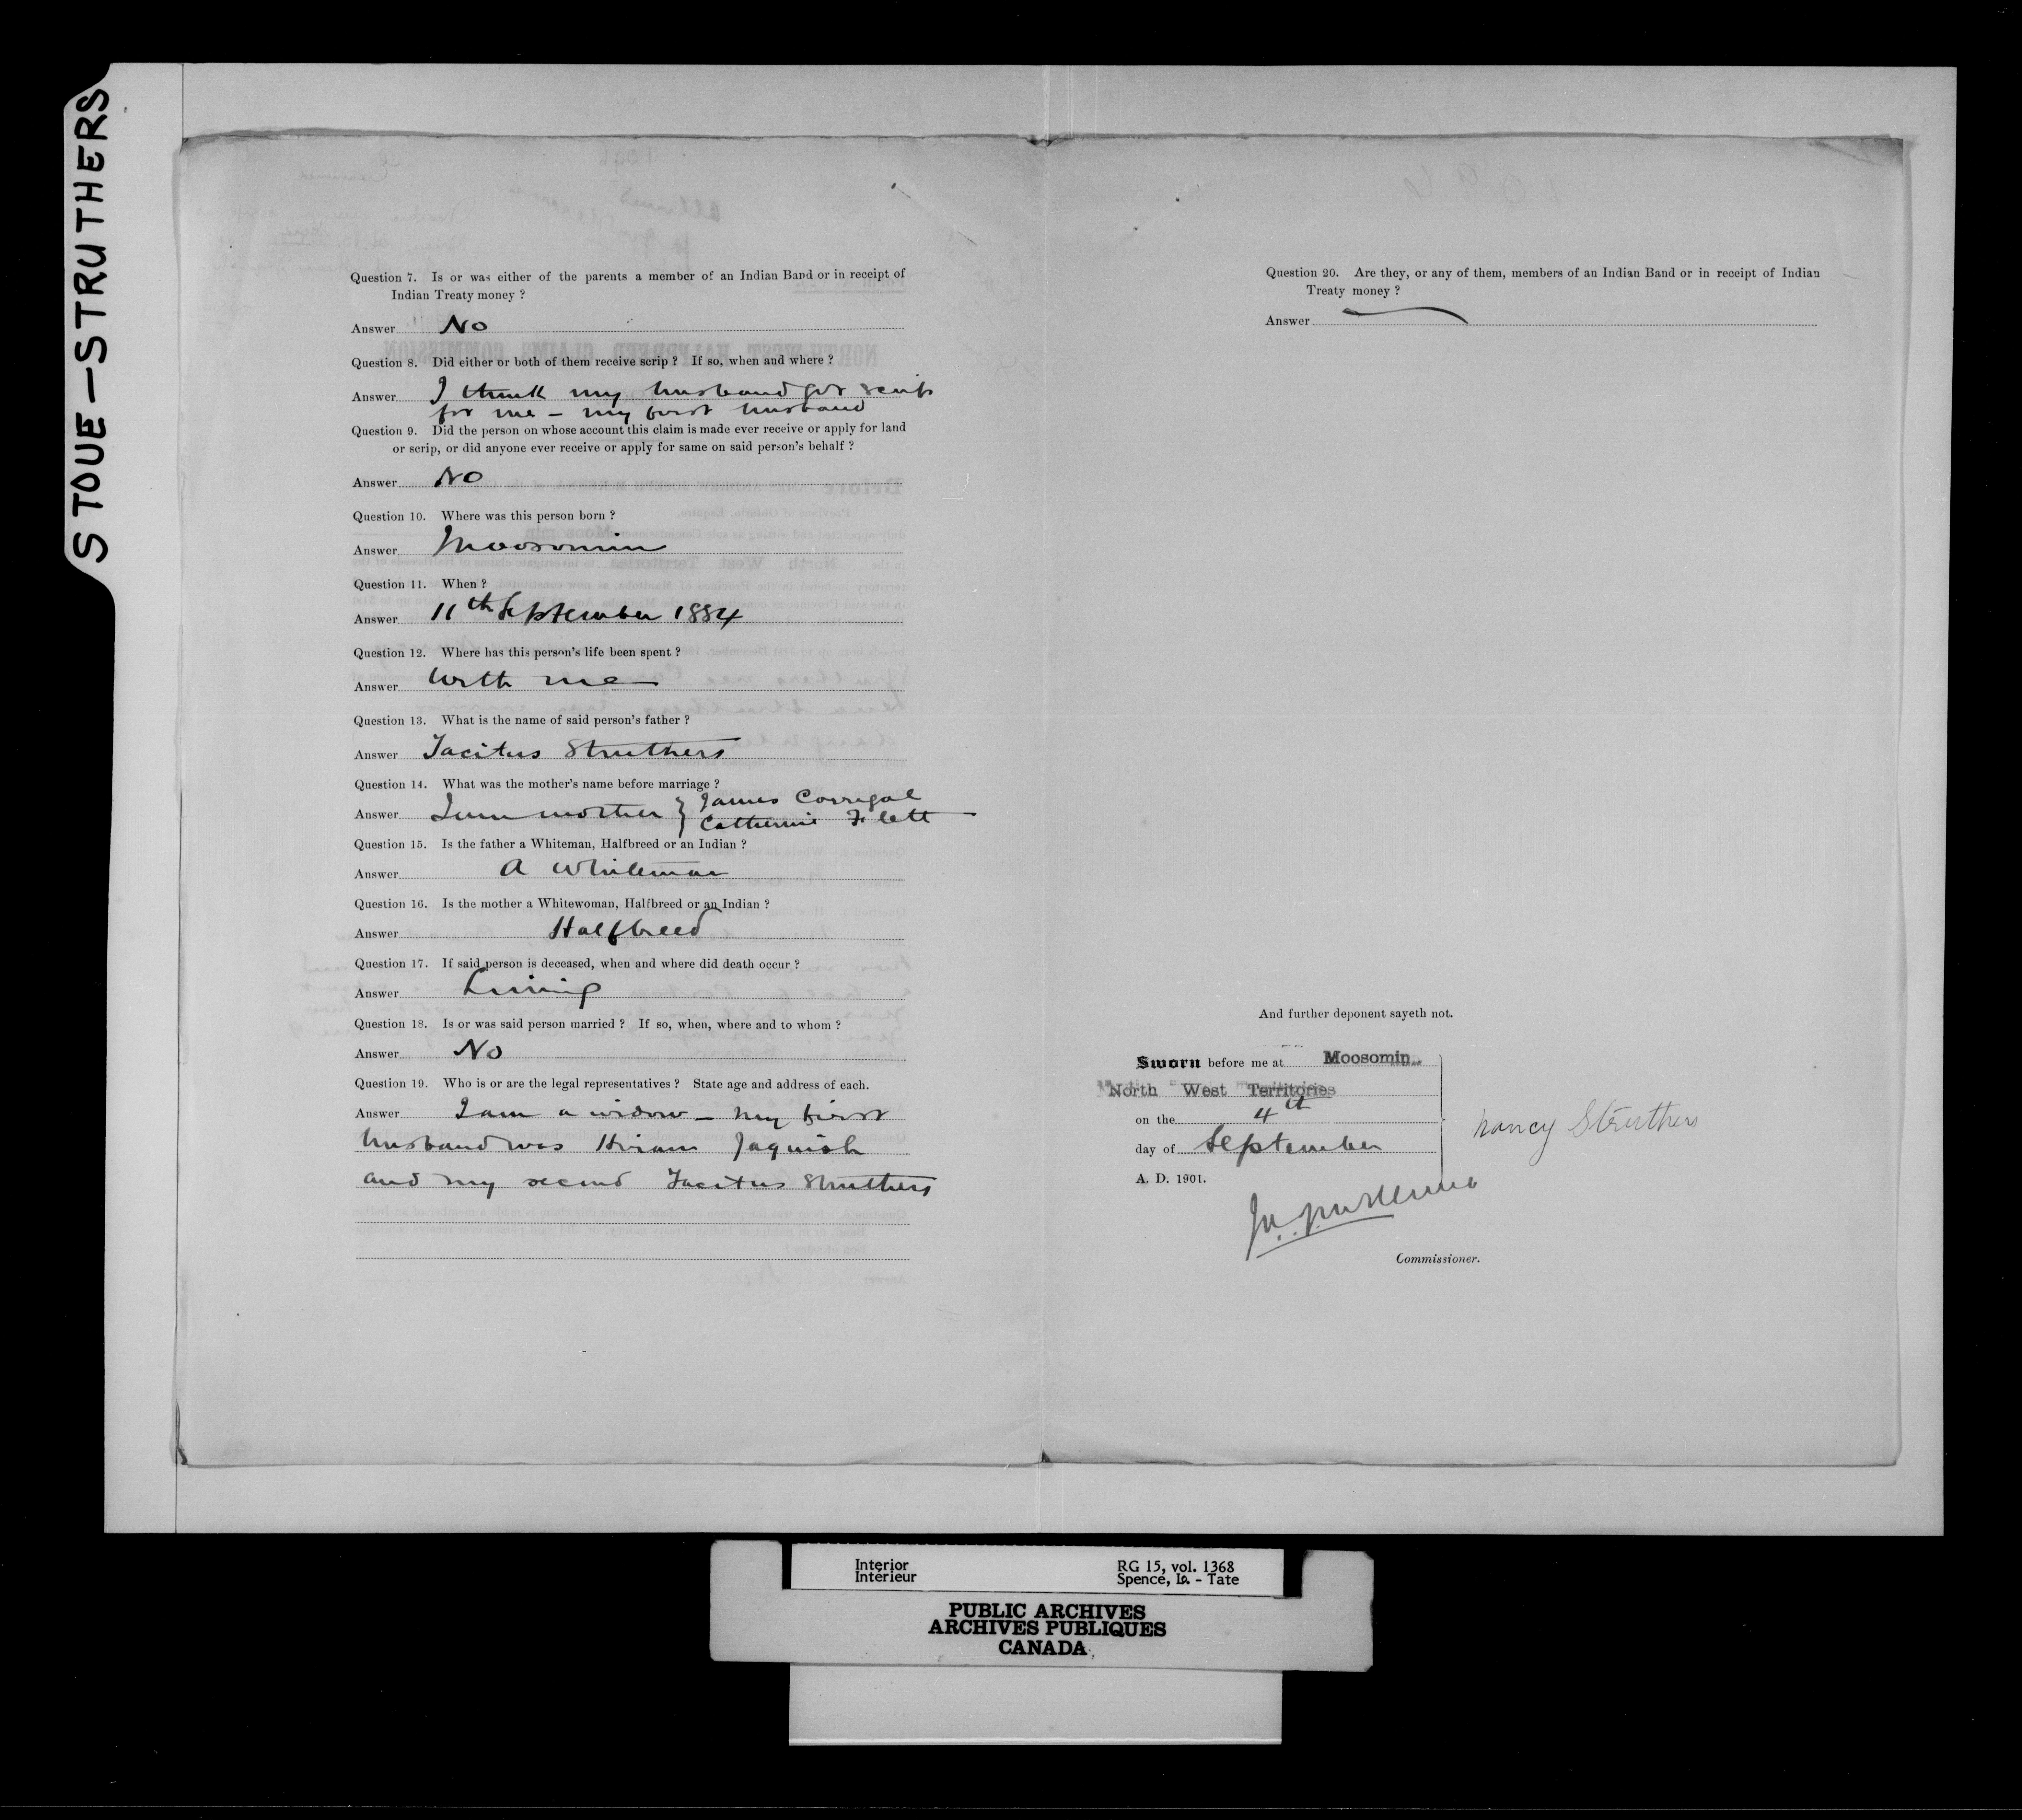 STOUE–STRUTHERS
Question 7. Is or was either of the parents a member of an Indian Band or in receipt of
Indian Treaty money ?
Answer No
Question 8. Did either or both of them receive scrip ? If so, when and where ?
Answer I think my husband got scrip
for me – my first husband
Question 9. Did the person on whose account this claim is made ever receive or apply for land
or scrip, or did anyone ever receive or apply for same on said person's behalf ?
Answer No
Question 10. Where was this person born ?
Answer Moosomin
Question 11. When ?
Answer 11th September 1884
Question 12. Where has this person's life been spent ?
Answer With me
Question 13. What is the name of said person's father ?
Answer Tacitus Struthers
Question 14. What was the mother's name before marriage ?
Answer I am mother } James Corrigal
Catherine Flett
Question 15. Is the father a Whiteman, Halfbreed or an Indian ?
Answer A Whiteman
Question 16. Is the mother a Whitewoman, Halfbreed or an Indian ?
Answer Halfbreed
Question 17. If said person is deceased, when and where did death occur ?
Answer Living
Question 18. Is or was said person married ? If so, when, where and to whom ?
Answer No
Question 19. Who is or are the legal representatives ? State age and address of each.
Answer I am a widow – my first
husband was Hiram Jaquish
and my second Tacitus Struthers
Question 20. Are they, or any of them, members of an Indian Band or in receipt of Indian
Treaty money ?
Answer
And further deponent sayeth not.
Sworn before me at Moosomin
North West Territories
on the 4th
day of September
A. D. 1901.
Nancy Struthers
Commissioner.
Interior
Intérieur
RG 15, vol. 1368
Spence, Lo. - Tate
PUBLIC ARCHIVES
ARCHIVES PUBLIQUES
CANADA